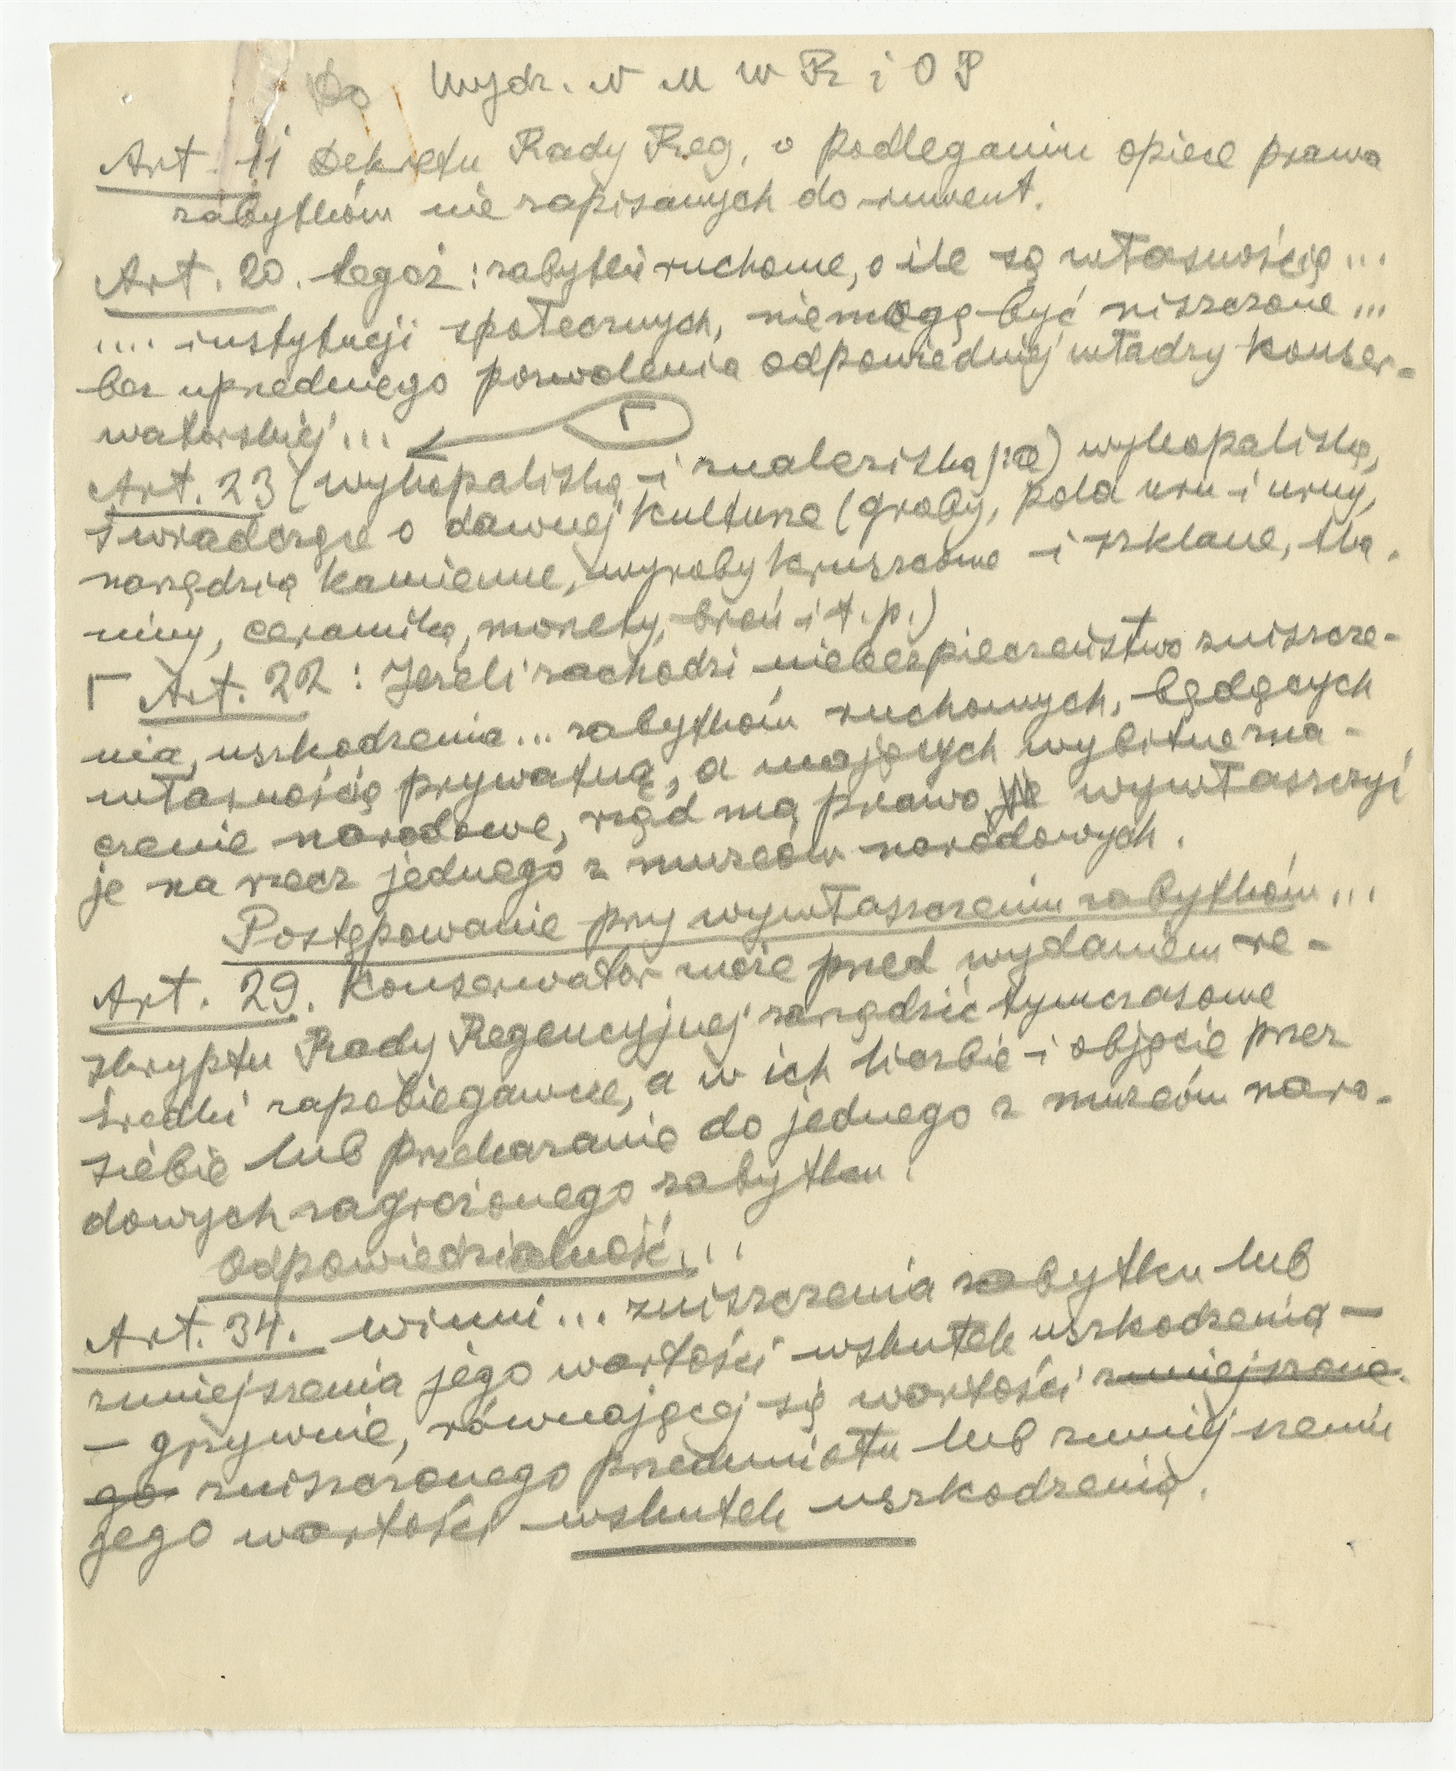 Do Wydz. N M W R i O P
Art. 11 Dekretu Rady Reg. o podleganiu opiece prawa
zabytków nie zapisanych do inwent.
Art. 20. tegoż: zabytki ruchome, o ile są własnością...
.... instytucji społecznych, nie mogą być niszczone...
bez uprzedniego pozwolenia odpowiedniej władzy konser-
watorskiej... Γ
Art. 23 (wykopaliska i znaleziska): wykopaliska,
świadczące o dawnej kulturze (groby, pola urn i urny,
narzędzia kamienne, wyroby kruszcowe i szklane, tka-
niny, ceramika, monety, broń i t.p.)
Γ Art. 22: Jeżeli zachodzi niebezpieczeństwo zniszcze-
nia, uszkodzenia... zabytków ruchomych, będących
własnością prywatną, a mających wybitne zna-
czenie narodowe, rząd ma prawo wywłaszczyć
je na rzecz jednego z muzeów narodowych.
Postępowanie przy wywłaszczeniu zabytków...
Art. 29. Konserwator może przed wydaniem re-
skryptu Rady Regencyjnej zarządzić tymczasowe
środki zapobiegawcze, a w ich liczbie i objęcie przez
siebie lub przekazanie do jednego z muzeów naro-
dowych zagrożonego zabytku.
Odpowiedzialność...
Art. 34. winni... zniszczenia zabytku lub
zmniejszenia jego wartości wskutek uszkodzenia —
— grzywnie, równającej się wartości zmniejszone-
go zniszczonego przedmiotu lub zmniejszeniu
jego wartości wskutek uszkodzenia.